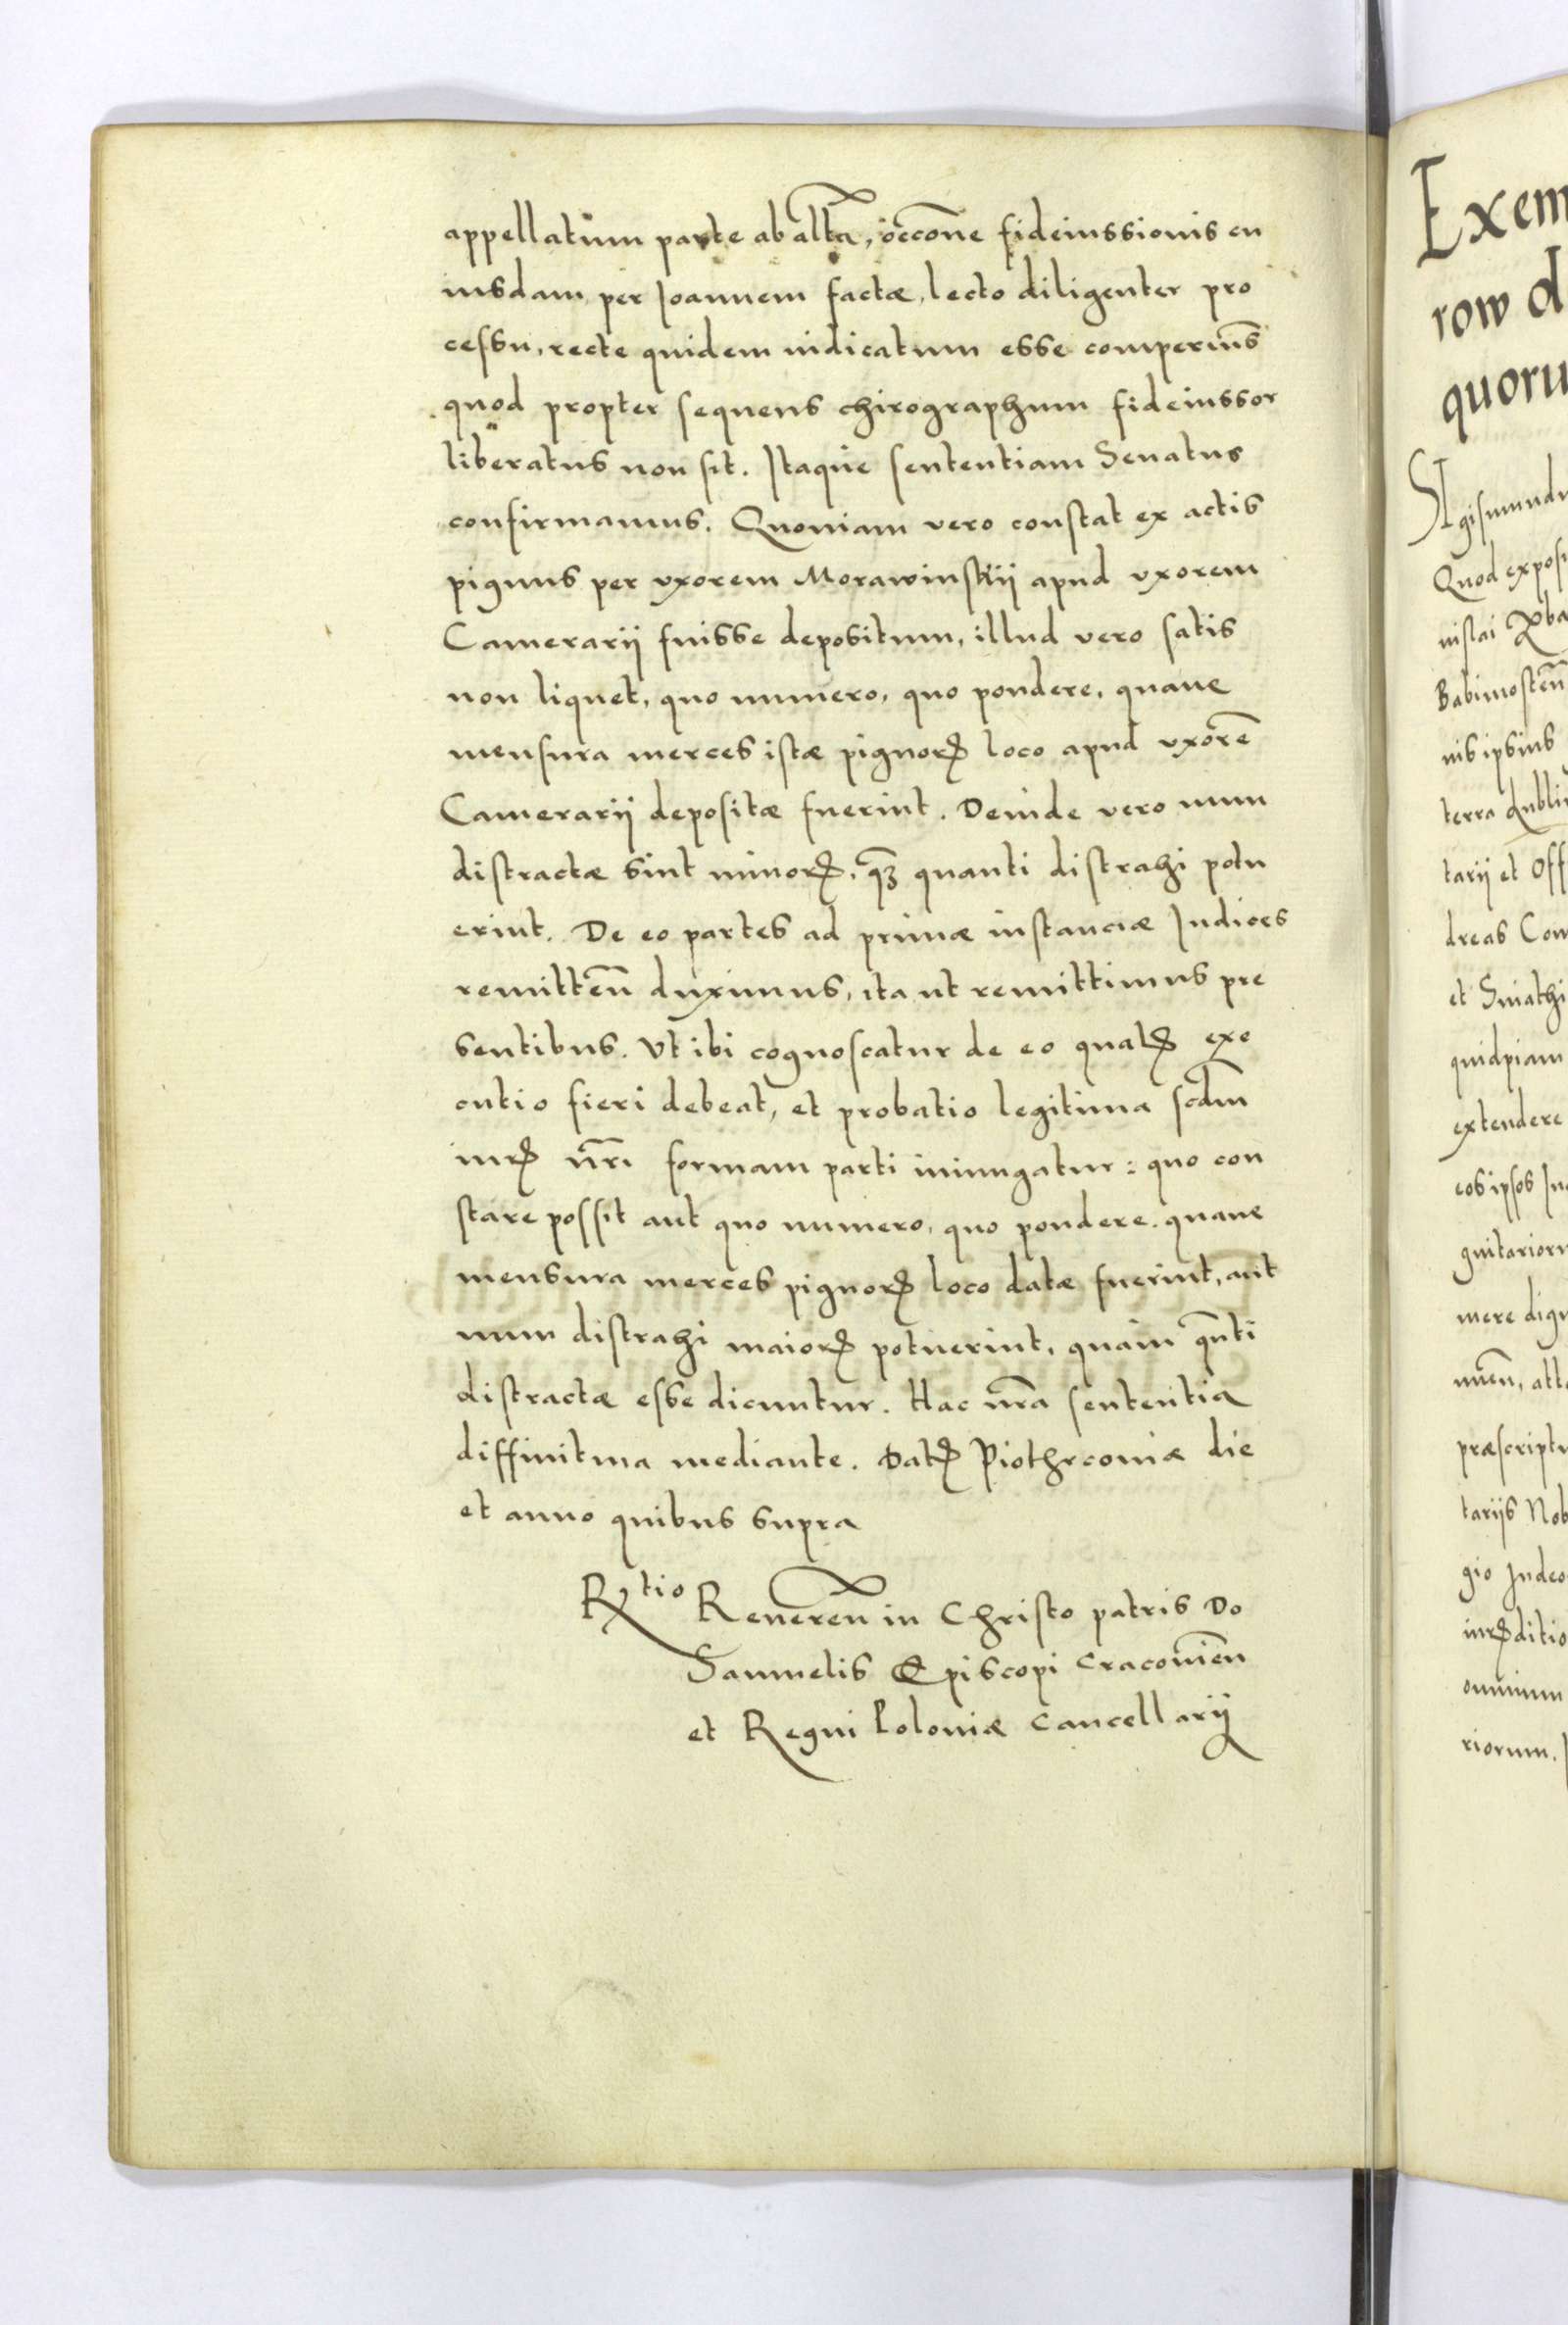 appellatum parte ab altͣa, occōne fideiussionis cu
iusdam per Joannem factæ, lecto diligenter pro
cessu, recte quidem iudicatum esse comperim̄s
quod propter sequens chirographum fideiussor
liberatus non sit. Itaque sententiam Senatus
confirmamus. Quoniam vero constat ex actis
pignus per vxorem Morawinskii apud vxorem
Camerarij fuisse depositum, illud vero satis
non liquet, quo numero, quo pondere, quaue
mensura merces istæ pignorꝭ loco apud vxorē
Camerarij depositæ fuerint. Deinde vero num
distractæ sint minorꝭ, qꝫ quanti distrahi potu
erint. De eo partes ad primæ instanciæ Judices
remitten̄ duximus, ita ut remittimus pre
sentibus. Vt ibi cognoscatur de eo qualꝭ exe
cutio fieri debeat, et probatio legitima scdm̄
iurꝭ nr̄i formam parti iniungatur: quo con
stare possit aut quo numero, quo pondere. quaue
mensura merces pignorꝭ loco datæ fuerint, aut
num distrahi maiorꝭ potuerint, quam qn̄ti
distractæ esse dicuntur. Hac nr̄a sententia
diffinitiua mediante. Datꝭ Piothrcouiæ die
et anno quibus supra
Rtio Reueren̄ in Christo patris Do
Samuelis Episcopi Cracouien̄
et Regni Poloniæ Cancellarij
Exem
row d
quoru
SIgismundu
Quod exposi
Babimosten̄
nis ipsius
terra dubli
tarij et Off
dreas Com
et Sniathi
quidpiam
extendere
eos ipsos Ju
gnitarioru
mere dign
præscriptu
tarijs Nob
gio Judeo
iurꝭditio
omnium
riorum.